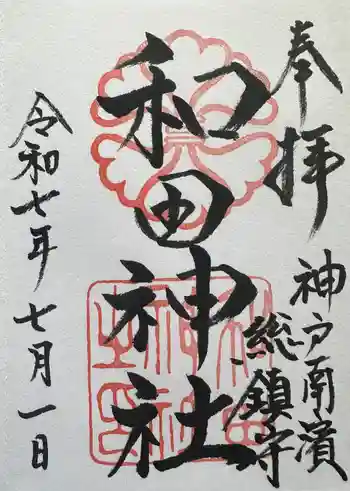 奉拝
神戸南濱
総鎮守
和田神社
令和七年七月一日